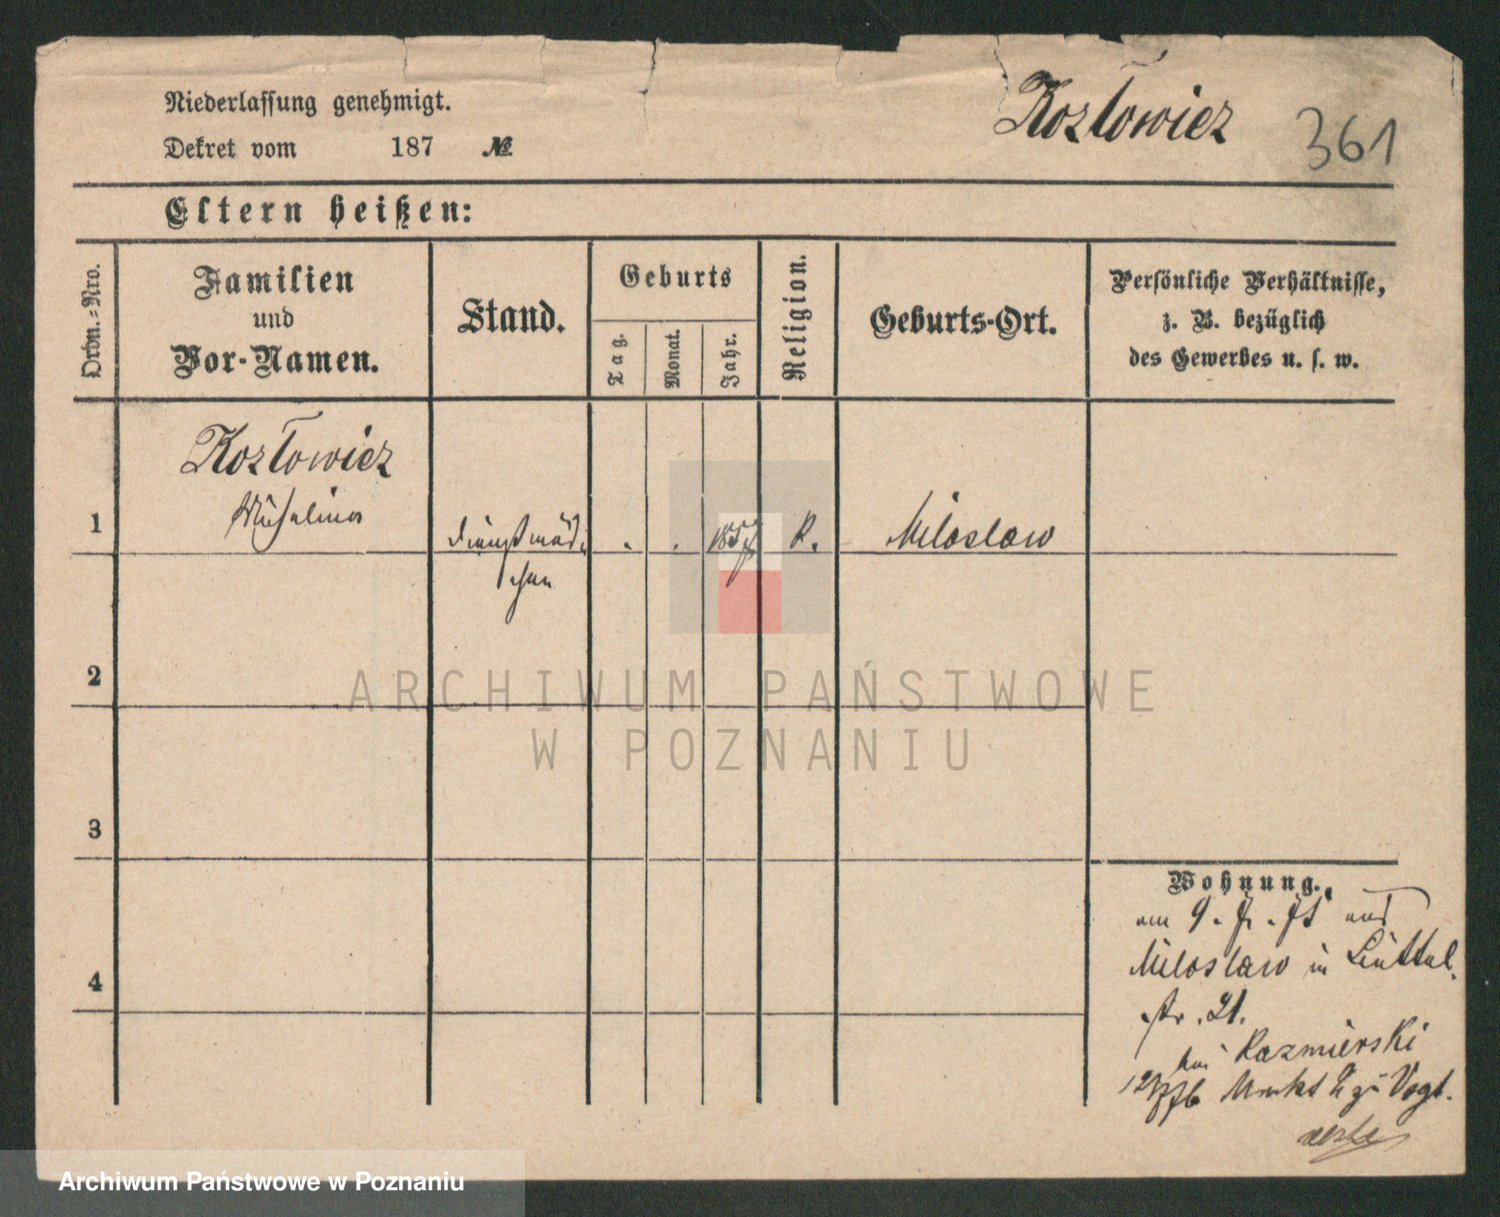 Niederlassung genehmigt.
Dekret vom 187 №
Kozłowicz
361
Eltern heißen:
Ordn.-Nro.
Familien
und
Vor-Namen.
Stand.
Geburts
Tag.
Monat.
Jahr.
Religion.
Geburts-Ort.
Persönliche Verhältnisse,
z. B. bezüglich
des Gewerbes u. s. w.
Kozłowicz
Michalina
1
Dienstmäd-
chen
. . 1857 K. Miloslaw
2
ARCHIWUM PAŃSTWOWE
W POZNANIU
3
Wohnung.
am 9. 7. 75 aus
Miloslaw in Lüttel-
4
str. 21.
bei Kazmierski
Markt zu Vogt.
Archiwum Państwowe w Poznaniu